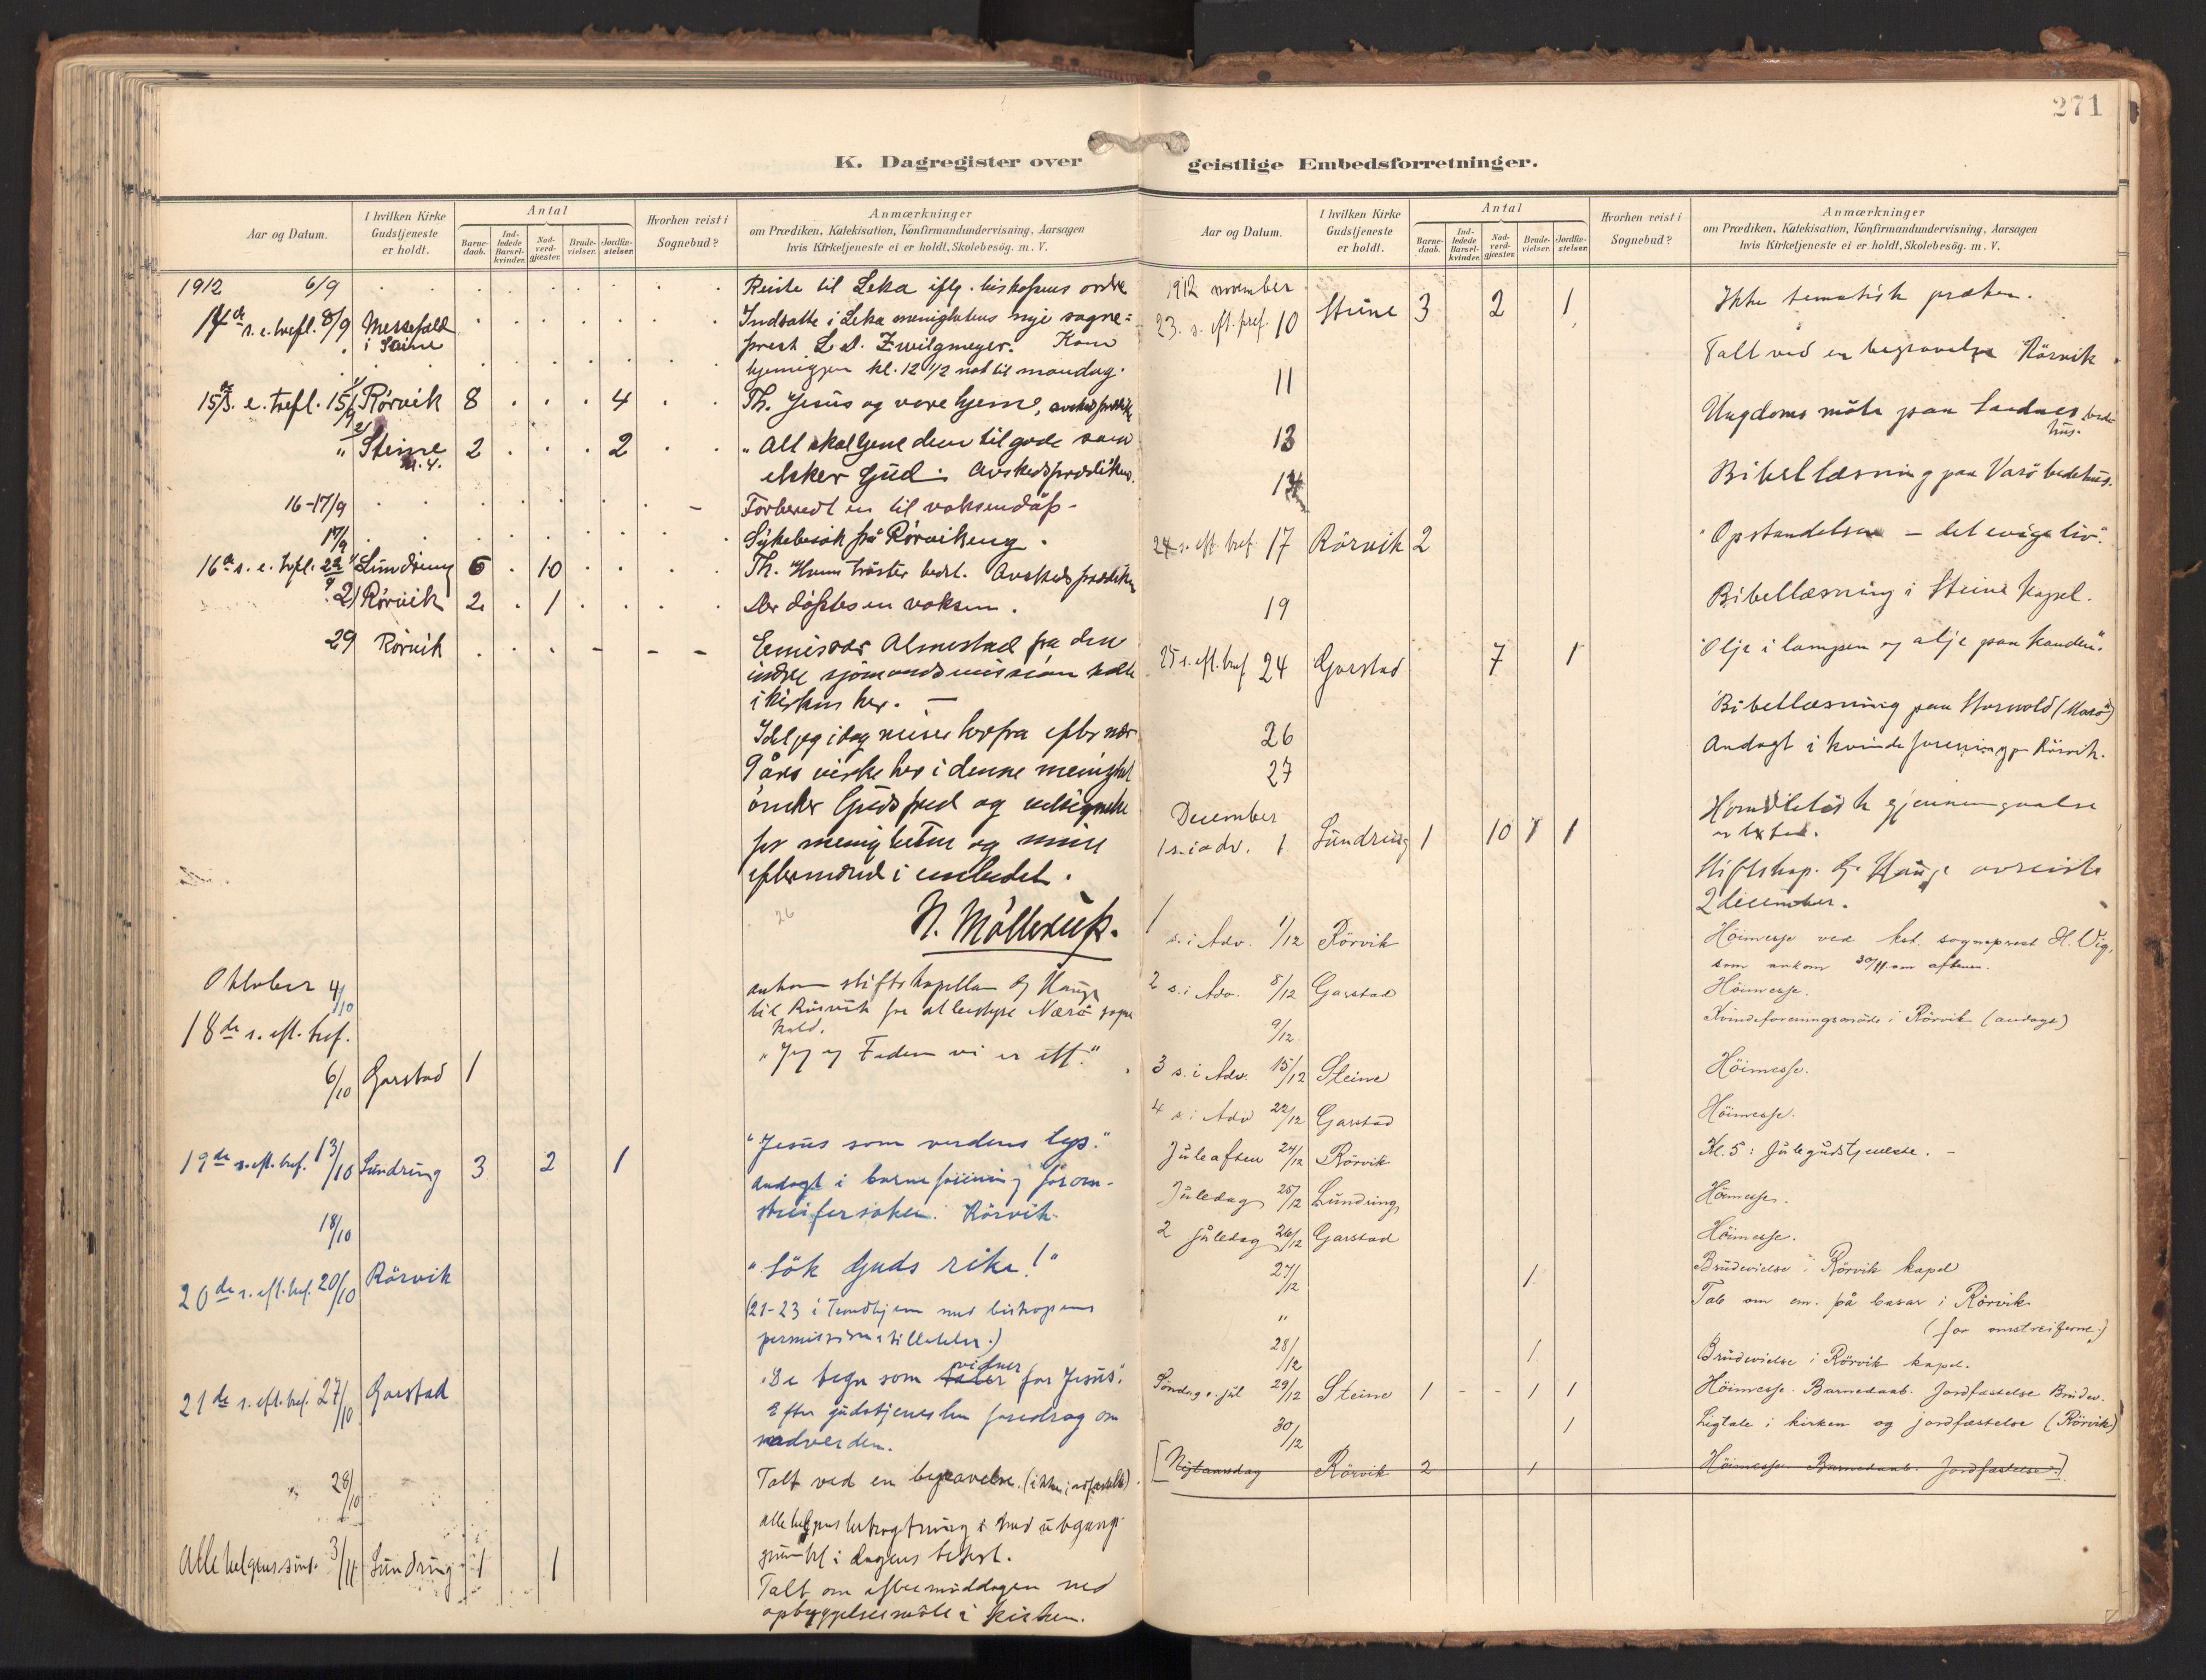 271
K. Dagregister over geistlige Embedsforretninger.
Aar og Datum.
I hvilken Kirke Gudstjeneste er holdt.
Antal
Barne-daab.
Ind-ledede Barsel-kvinder.
Nad-verd-gjæster.
Brude-vielser.
Jordfæ-stelser.
Hvorhen reist i Sognebud?
Anmærkninger
om Prædiken, Katekisation, Konfirmandundervisning, Aarsagen
hvis Kirketjeneste ei er holdt, Skolebesög. m. V.
1912 6/9 Reiste til Leka iflg. biskopens ordre
14de s. e. trefl. 8/9 Messefald i Steine Indsatte i Leka menighetens nye sogne=
prest L. D. Zwilgmeyer. Kom
hjemigjen kl. 12 1/2 nat til mandag.
15de s. e. trefl. 15/9 1/ Rørvik 8 4 Th. Jesus og vore hjem, avskedsprædik
" 2/ Steine 2 2 "Alt skal tjene dem til gode som
elsker Gud". Avskedsprædiken.
16-17/9 Forberedt en til voksendåp -
17/9 Sykebesök på Rörvikeng.
16de s. e. trefl. 22/9 1/ Lundring 6 10 Th. Hvem trøster bedst. Avskedsprædiken
2) Rørvik 2 1 Der döptes en voksen.
29 Rørvik Emissær Almestad fra den
indre sjömandsmission talte
i kirken her. —
Idet jeg idag reiser herfra efter nær
9 års virke her i denne menighet
önsker Guds fred og velsignelse
for menigheten og mine
eftermænd i embedet.
N. Möllerup.
26
Oktober 4/10 ankom stiftskapellan G Hauge
til Rørvik for at bestyre Nærö sogne
kald.
18de s. eft. tref.
6/10 Garstad 1 "Jeg og Faderen vi er ett."
19de s. eft. tref. 13/10 Lundring 3 2 1 "Jesus som verdens lys."
18/10 Andagt i barneforening for om-
streifersaken. Rörvik.
20de s. eft. tref. 20/10 Rörvik "Sök Guds rike!"
(21-23 i Trondhjem med biskopens
permissionstilladelse.)
21de s. eft. tref. 27/10 Garstad "De tegn som taler vidner for Jesus".
Efter gudstjenesten foredrag om
nadverden.
28/10 Talt ved en begravelse. (ikke jordfæstelse).
Alle helgens sönd. 3/11 Lundring 1 1 allehelgens betragtning med utgangs
punkt i dagens tekst.
Talt om eftermiddagen ved
opbyggelsesmöte i kirken.
Aar og Datum.
I hvilken Kirke Gudstjeneste er holdt.
Antal
Barne-daab.
Ind-ledede Barsel-kvinder.
Nad-verd-gjæster.
Brude-vielser.
Jordfæ-stelser.
Hvorhen reist i Sognebud?
Anmærkninger
om Prædiken, Katekisation, Konfirmandundervisning, Aarsagen
hvis Kirketjeneste ei er holdt, Skolebesög. m. V.
1912 november
23. s. eft. tref. 10 Steine 3 2 1 Ikke tematisk præken.
11 Talt ved en begravelse Rörvik
13 Ungdoms möte paa Sandnes bede
hus.
14 Bibellæsning paa Varö bedehus.
24 s. eft. tref. 17 Rörvik 2 "Opstandelsen – det evige liv."
19 Bibellæsning i Steine kapel.
25 s. eft. tref 24 Garstad 7 1 "Olje i lampen og olje paa kanden."
26 Bibellæsning paa (Marö)
27 Andagt i kvindeforening Rörvik.
December
1 s. i adv. 1 Lundring 1 10 1 1 Homiletisk gjennemgaaelse
av tekst.
Stiftskap. G. Hauge avreiste
2 december.
1 s. i Adv. 1/12 Rörvik Höimesse ved kst. sogneprest H. Vig,
som ankom 30/11 om aftenen.
2 s. i Adv. 8/12 Garstad Höimesse.
9/12 Kvindeforeningsmöde i Rörvik (andagt)
3 s. i Adv. 15/12 Steine Höimesse.
4 s. i Adv 22/12 Garstad Höimesse.
Juleaften 24/12 Rörvik Kl. 5: Julegudstjeneste. -
Juledag 25/12 Lundring Höimesse.
2 juledag 26/12 Garstad Höimesse.
27/12 1 Brudevielse i Rörvik kapel
" Tale om em. på basar i Rörvik
(for omstreiferne.)
28/12 1 Brudevielse i Rörvik kapel.
Söndag e. jul 29/12 Steine 1 - - 1 1 Höimesse. Barnedaab. Jordfæstelse Brudev.
30/12 1 Ligtale i kirken og jordfæstelse (Rörvik)
[Nytaarsdag Rörvik 2 1 Höimesse. Barnedaab. Jordfæstelse.]